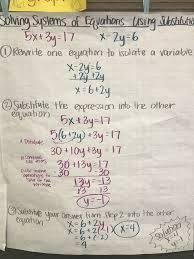 Solving Systems of Equations Using Substitution
5x+3y=17 x-2y=6
① Rewrite one equation to isolate a variable
x-2y=6
+2y +2y
x=6+2y
② Substitute the expression into the other
equation.
5x+3y=17
5(6+2y)+3y=17
30+10y+3y=17
30+13y=17
-30 -30
13y=-13
13 13
y=-1
③ Substitute your answer from Step 2 into the other
equation
x=6+2y
x=6+2(-1)
x=6+(-2)
x=4
Solution